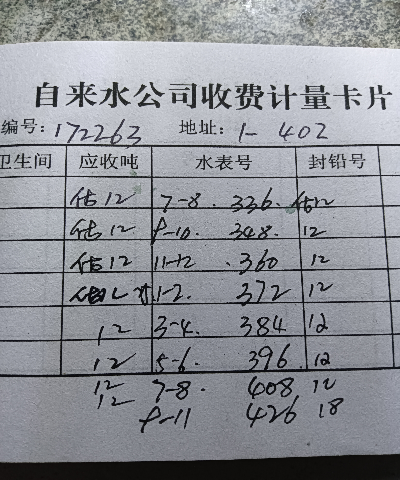 自来水公司收费计量卡片
编号: 172263 地址: 1- 402
卫生间 应收吨 水表号 封铅号
估12 7-8. 336. 估12
估12 9-10. 348. 12
估12 11-12 .360 12
1-2. 372 12
12 3-4. 384 12
12 5-6. 396. 12
12 7-8. 408 12
12 9-11 426 18